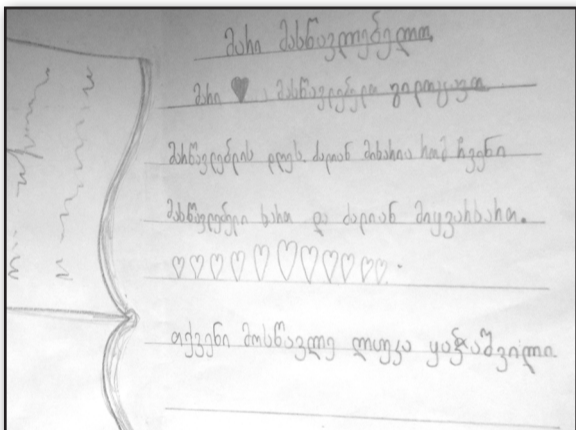 მარი მასწავლებელო,
მარი ♥ . მასწავლებელო გილოცავთ
მასწავლებლის დღეს. ძალიან მიხარია რომ ჩვენი
მასწავლებელი ხართ და ძალიან მიყვარხართ.
♡♡♡♡♡♡♡♡♡♡♡.
თქვენი მოსწავლე ლუკა ყაჭაშვილი